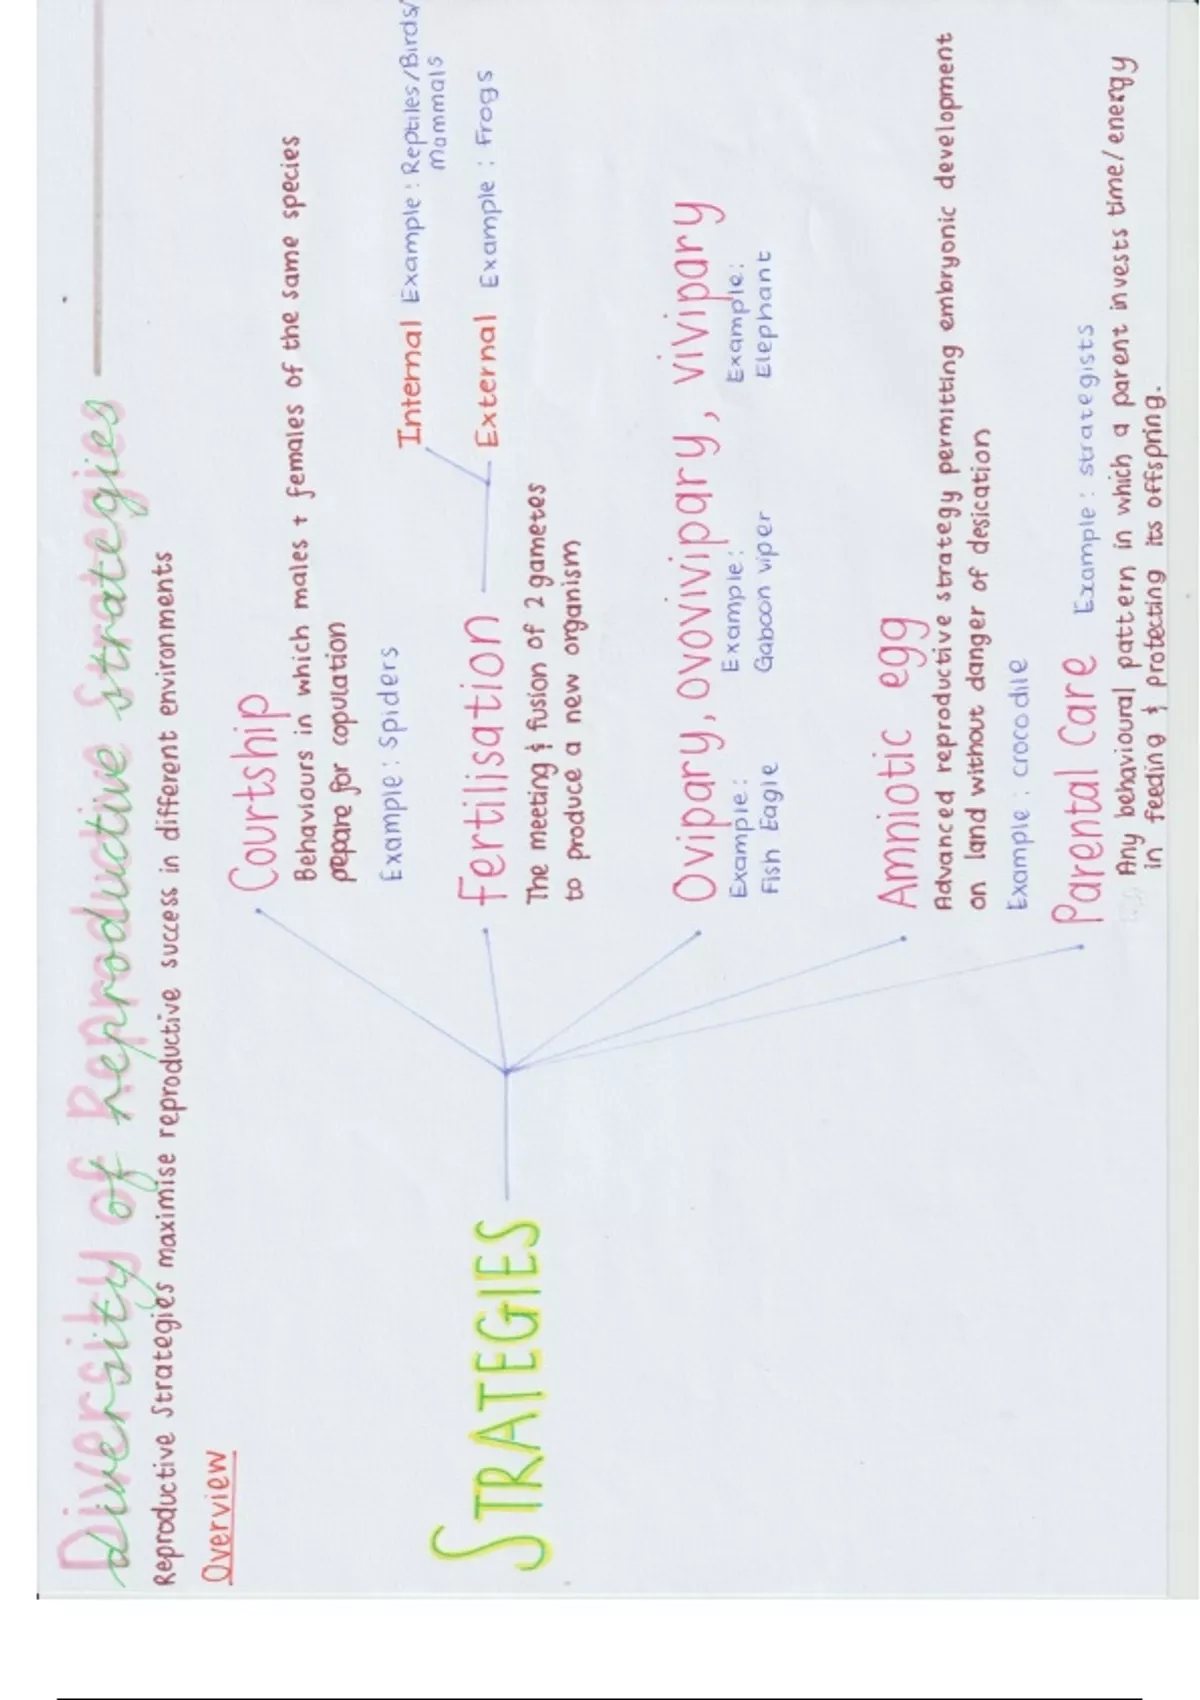 Diversity of Reproductive Strategies
Reproductive Strategies maximise reproductive success in different environments
Overview
STRATEGIES
Courtship
Behaviours in which males + females of the same species
pepare for copulation
Example : Spiders
Fertilisation
The meeting & fusion of 2 gametes
to produce a new organism
Internal Example : Reptiles/Birds/
Mammals
External Example : Frogs
Ovipary, ovovivipary, vivipary
Example :
Fish Eagle
Example :
Gaboon viper
Example :
Elephant
Amniotic egg
Advanced reproductive strategy permitting embryonic development
on land without danger of desication
Example : crocodile
Parental Care Example : strategists
Any behavioural pattern in which a parent invests time/energy
in feeding & protecting its offspring.